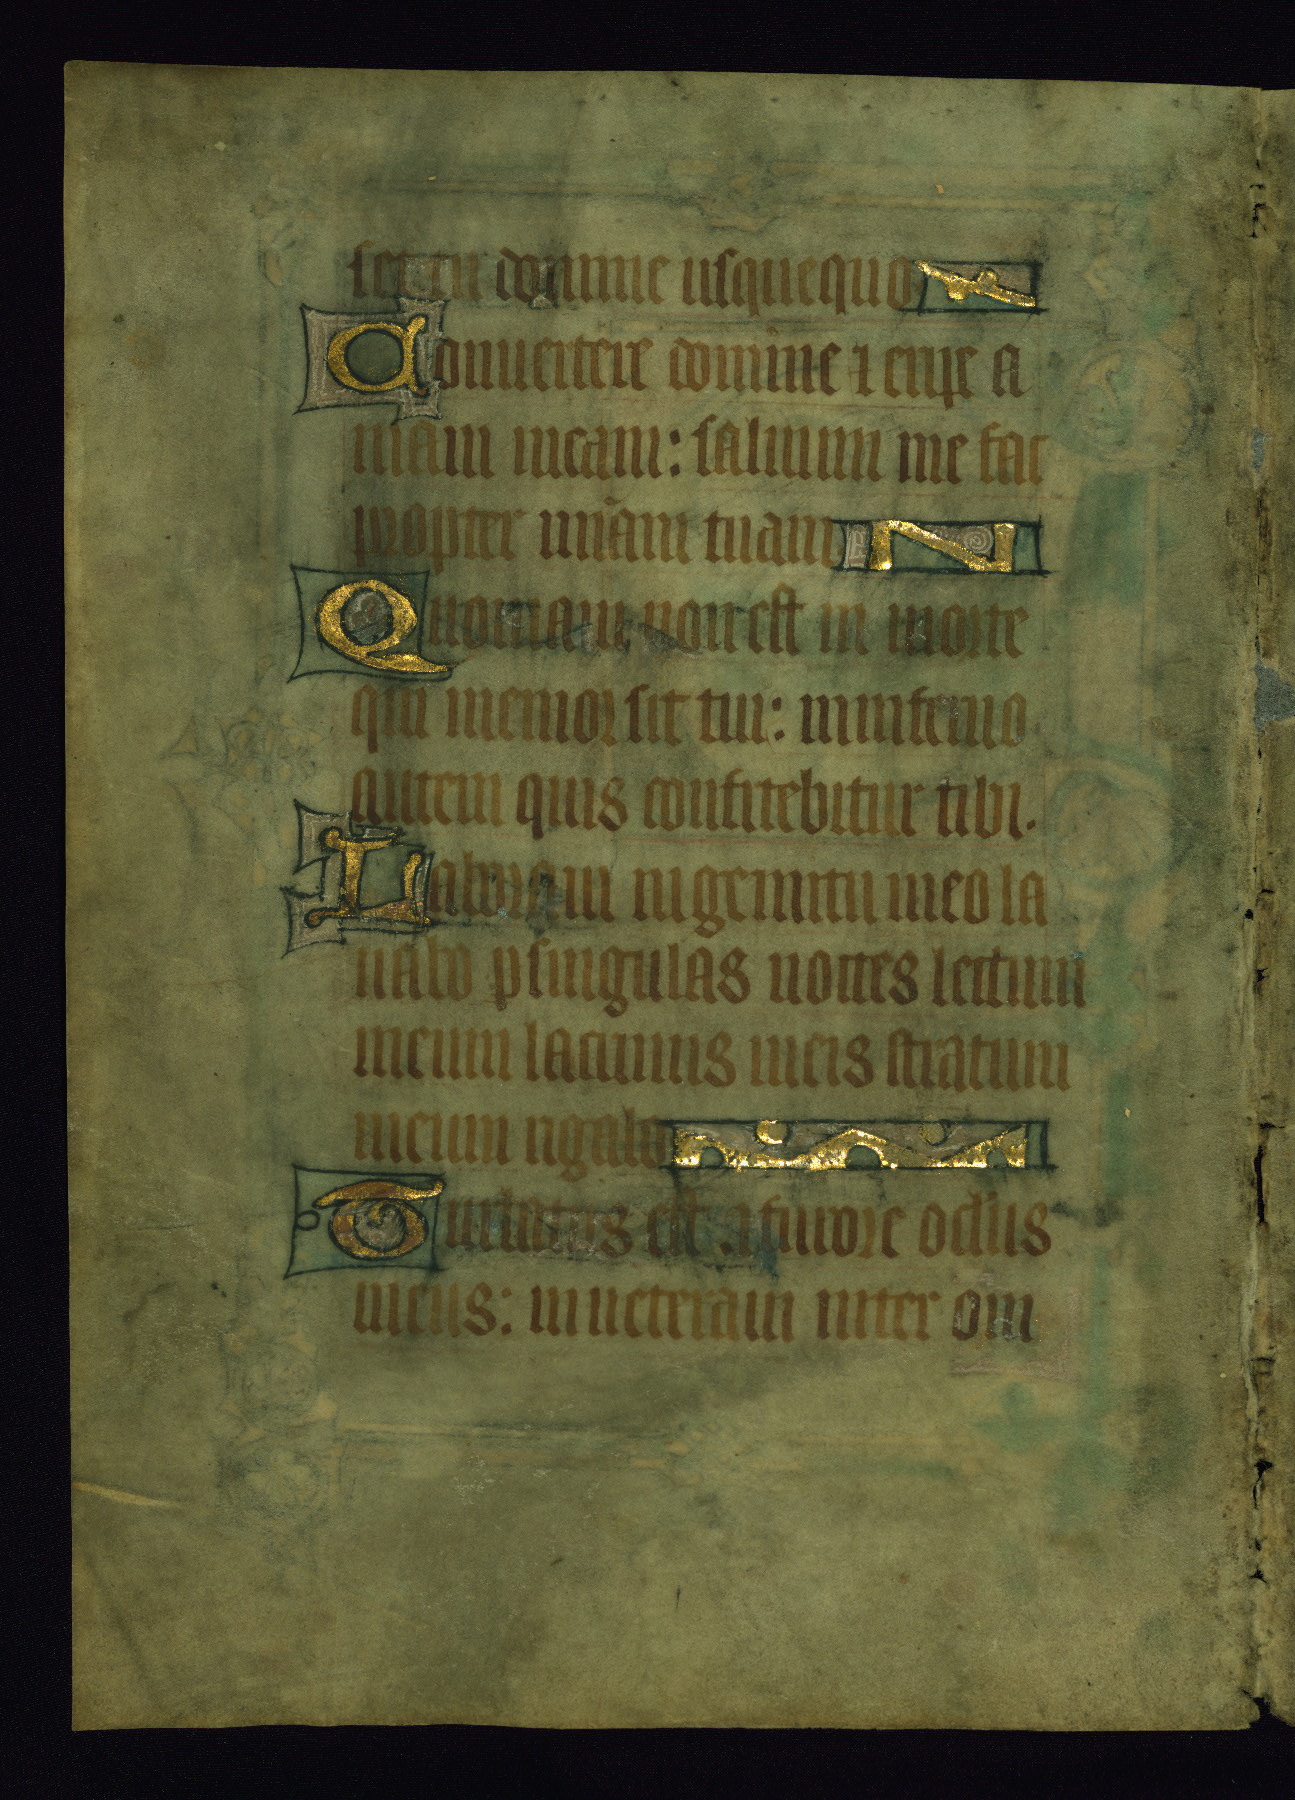 set tu domine usquequo
Conuertere domine ⁊ eripe a
niam meam: saluum me fac
propter mīam tuam
Quoniam non est in morte
qui memor sit tui: in inferno
autem quis confitebitur tibi.
Laboraui in gemitu meo la
uabo p singulas noctes lectum
meum lacrimis meis stratum
meum rigabo
Turbatus est a furore oculus
meus: inueteraui inter om